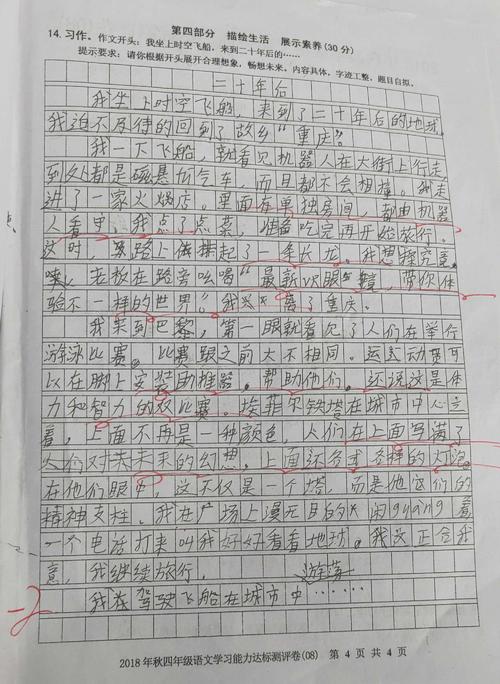 第四部分 描绘生活 展示素养(30分)
14. 习作。作文开头：我坐上时空飞船，来到二十年后的……
提示要求：请你根据开头展开合理想象，畅想未来。内容具体，字迹工整，题目自拟。
二十年后
我坐上时空飞船，来到了二十年后的地球。
我迫不及待的回到了故乡“重庆”。
我一下飞船，就看见机器人在大街上行走，
到处都是磁悬浮汽车，而且都不会相撞。我走
进了一家火锅店。里面有单独房间，都由机器
人看守，我点了点菜，准备吃完再开始旅行。
这时，路上排起了一条长龙。我想探究竟
噢，老板在路旁吆喝“最新识眼镜，带你体
验不一样的世界。”我离了重庆。
我来到巴黎，第一眼就看见了人们在举行
游泳比赛。比赛跟之前大不相同。运动员可
以在脚上安装助推器。帮助他们。还说这是体
力和智力的双比赛。埃菲尔铁塔在城市中心立
着，上面不再是一种颜色，人们在上面写满了
人们对未来的幻想。上面还各式各样的灯泡
在他们眼中，这不仅是一个塔，而是他们的
精神支柱。我在广场上漫无目的闲guàng着
一个电话打来叫我好好看看地球。我这正合我
意，我继续旅行。
游荡
我驾驶飞船在城市中……
-2
2018年秋四年级语文学习能力达标测评卷(08) 第 4 页 共 4 页